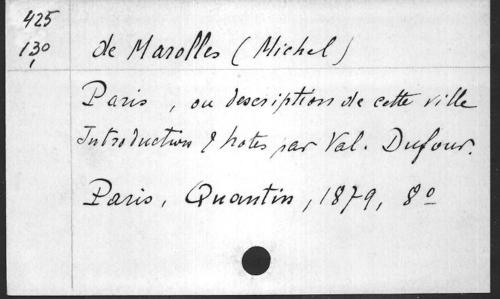 425
130
de Marolles (Michel)
Paris, ou description de cette ville
Introduction & notes par Val. Dufour.
Paris, Quantin, 1879, 8º